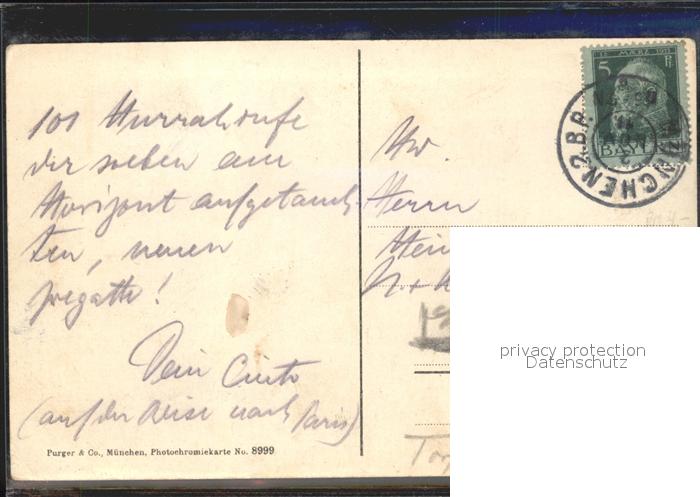 101 Hurrahrufe
der soeben am
Horizont aufgetauch-
ten, neuen
Fregatte!
Dein
(auf der Reise nach Paris)
Purger & Co., München, Photochromiekarte No. 8999
Herrn
5 Pf
12. MÄRZ 1911
BAYERN
MÜNCHEN 2. B.P.
privacy protection
Datenschutz